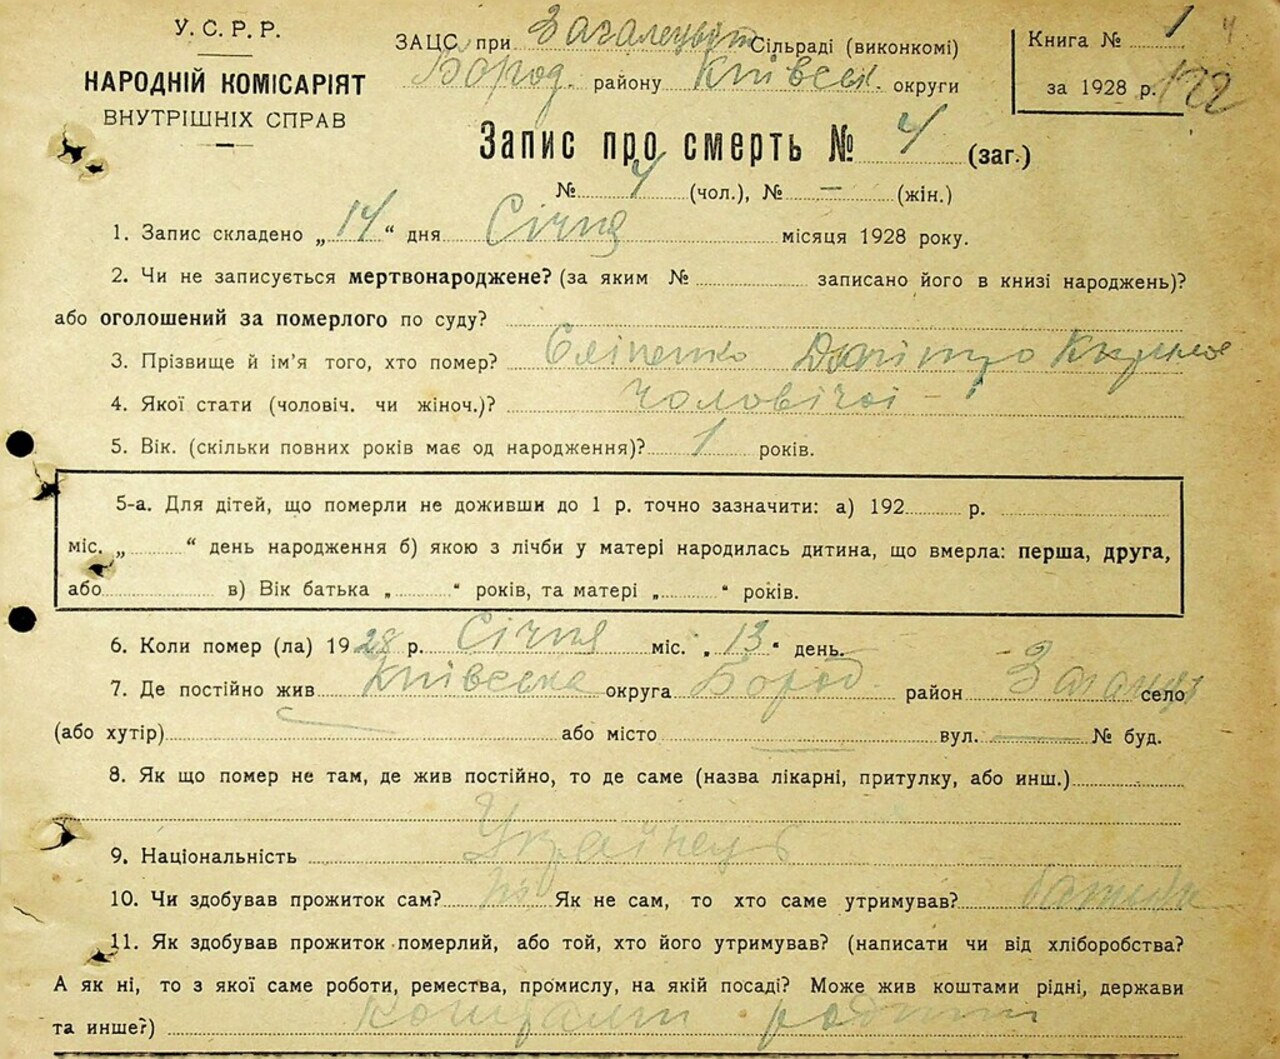 У. С. Р. Р.
НАРОДНІЙ КОМІСАРІЯТ
ВНУТРІШНІХ СПРАВ
ЗАЦС при Сільраді (виконкомі)
Бород. району Київськ. округи
Книга № 1
за 1928 р. 122
4
Запис про смерть № 4 (заг.)
№ 4 (чол.), № — (жін.)
1. Запис складено „14“ дня Січня місяця 1928 року.
2. Чи не записується мертвонароджене? (за яким № записано його в книзі народжень)?
або оголошений за померлого по суду?
3. Прізвище й ім’я того, хто помер? Сліпенко Дмітро
4. Якої стати (чоловіч. чи жіноч.)? чоловічої -
5. Вік. (скільки повних років має од народження)? 1 років.
5-а. Для дітей, що померли не доживши до 1 р. точно зазначити: а) 192 р.
міс. „ “ день народження б) якою з лічби у матері народилась дитина, що вмерла: перша, друга,
або в) Вік батька „ “ років, та матері „ “ років.
6. Коли помер (ла) 1928 р. Січня міс. „13“ день.
7. Де постійно жив Київська округа Бород. район село
(або хутір) або місто вул. — № буд.
8. Як що помер не там, де жив постійно, то де саме (назва лікарні, притулку, або инш.)
9. Національність Українець
10. Чи здобував прожиток сам? Ні Як не сам, то хто саме утримував? батьки
11. Як здобував прожиток померлий, або той, хто його утримував? (написати чи від хліборобства?
А як ні, то з якої саме роботи, ремества, промислу, на якій посаді? Може жив коштами рідні, держави
та инше?) Коштами родини